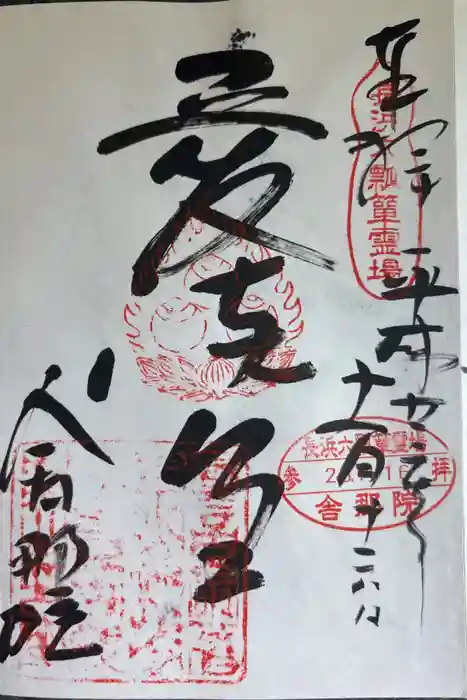 奉拝
平成廿三年
十一月十六日
長浜六瓢箪霊場
愛染明王
長浜六瓢箪霊場
参拝
舎那院
舎那院